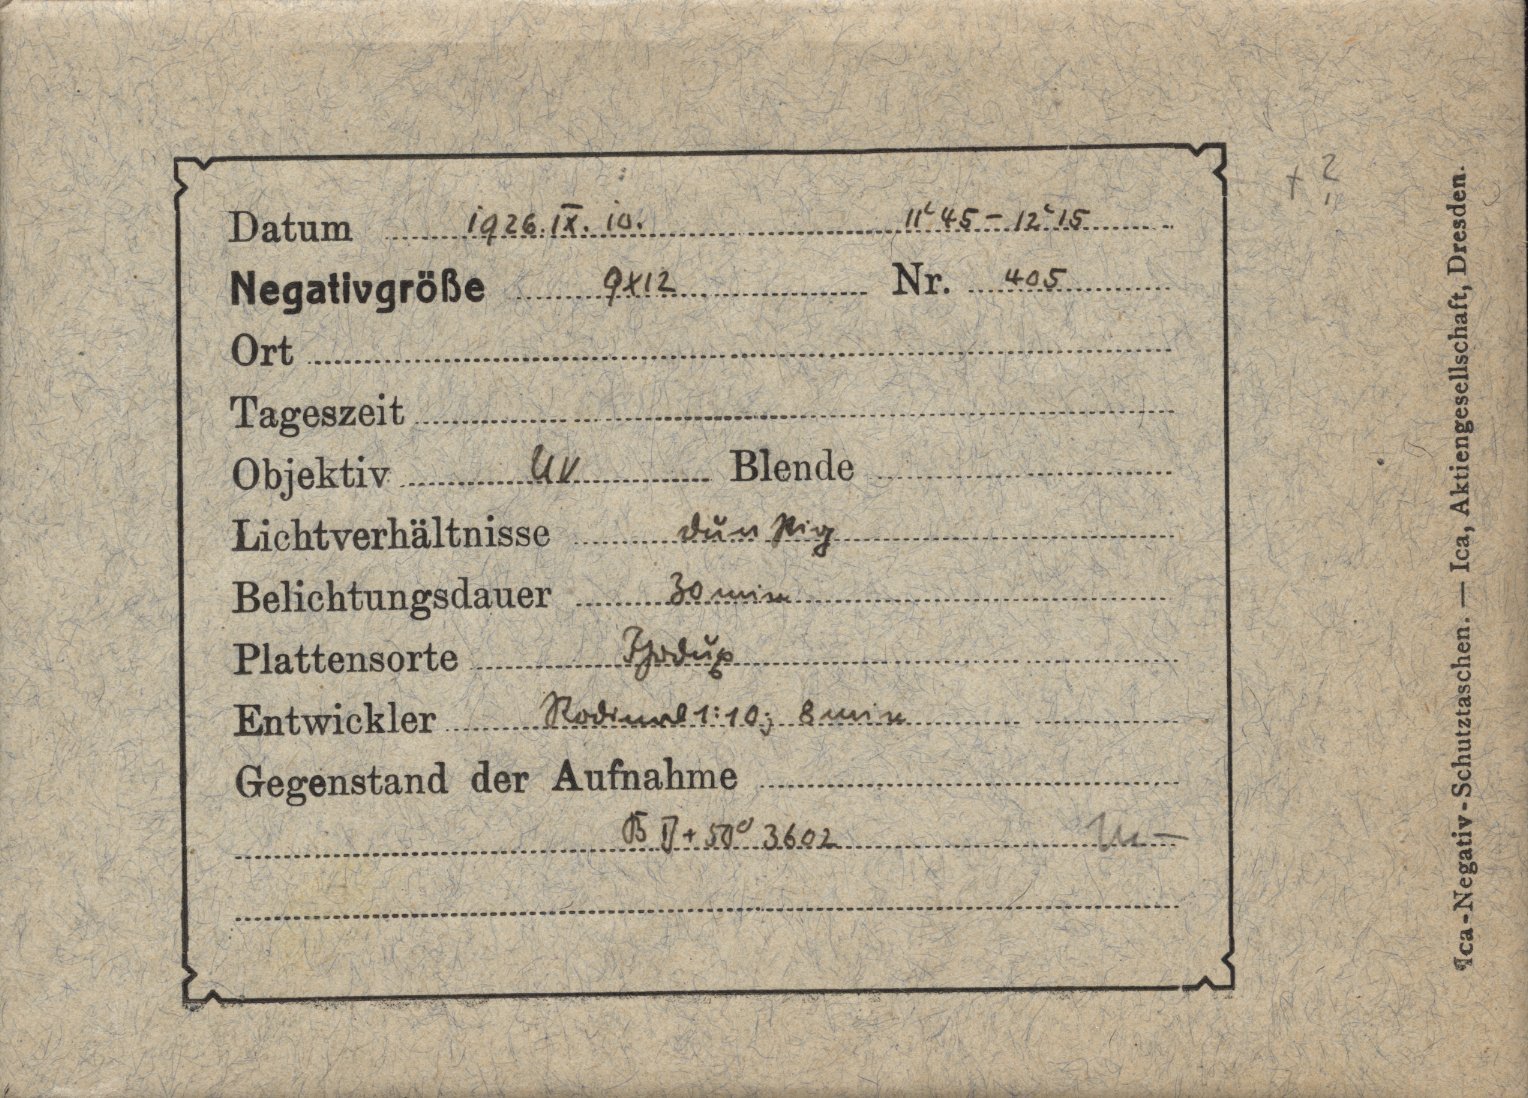 Datum 1926. IX. 10. 11h 45 - 12h 15
Negativgröße 9x12 Nr. 405
Ort
Tageszeit
Objektiv UV Blende
Lichtverhältnisse dunstig
Belichtungsdauer 30 min
Plattensorte
Entwickler Rodinal 1:10; 8 min
Gegenstand der Aufnahme
+ 50° 3602
Ica-Negativ-Schutztaschen. — Ica, Aktiengesellschaft, Dresden.